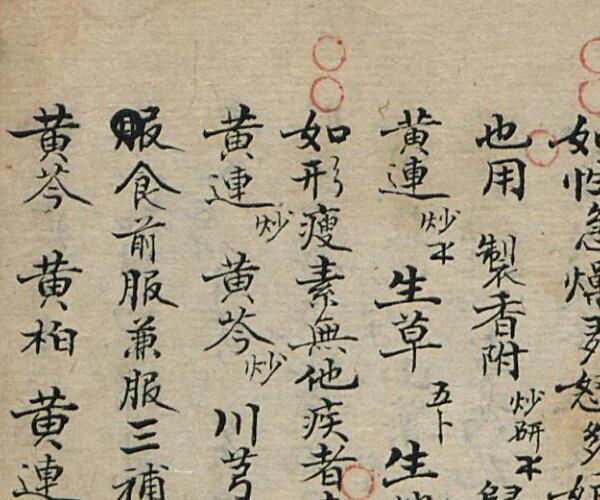 如性急燥多怒多
也用 製香附炒研
黃連炒 生草五卜 生
如形瘦素無他疾者
黃連炒 黃芩炒 川芎
服食前服兼服三補
黃芩 黃柏 黃連